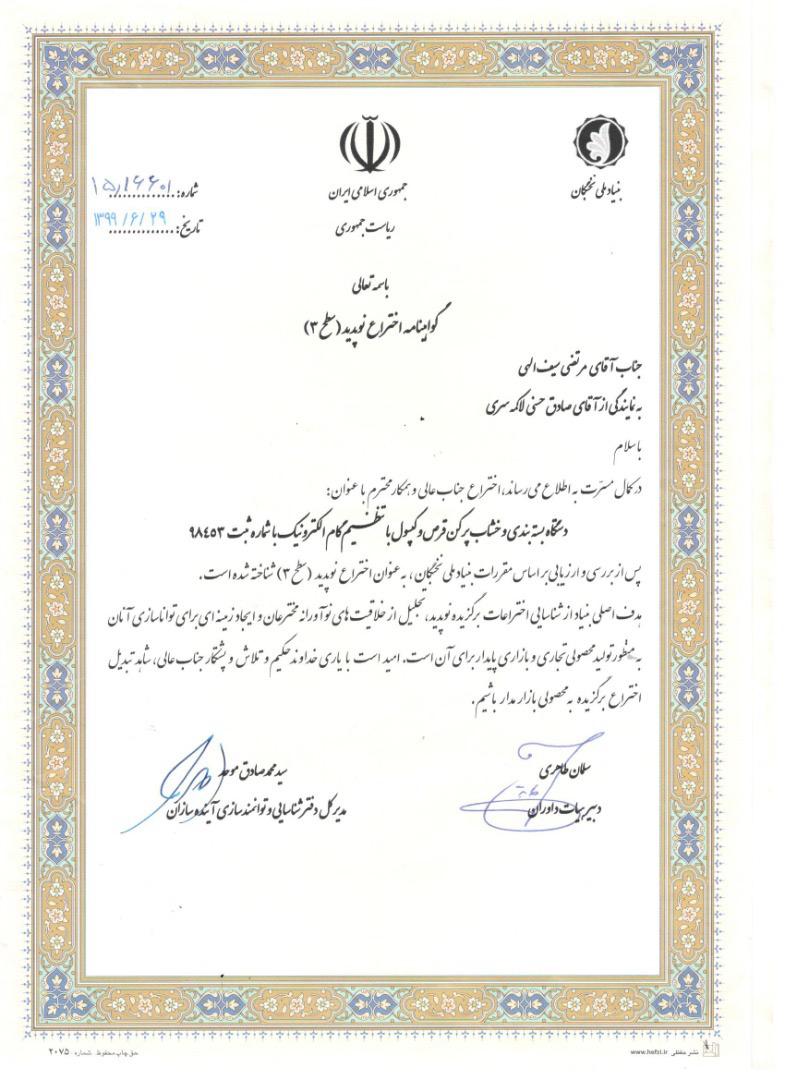 بنیاد ملی نخبگان
جمهوری اسلامی ایران
ریاست جمهوری
شماره: ۱۵/۱۶۶۰۱
تاریخ: ۱۳۹۹/۶/۲۹
باسمه تعالی
گواهینامه اختراع نوپدید (سطح ۳)
جناب آقای مرتضی سیف الهی
به نمایندگی از آقای صادق حسنی لاکمه سری
با سلام
در کمال مسرت به اطلاع می‌رساند، اختراع جناب عالی و همکار محترم با عنوان:
دستگاه بسته بندی و خشاب پرکن قرص و کپسول با تنظیم گام الکترونیک با شماره ثبت ۹۸۴۵۳
پس از بررسی و ارزیابی بر اساس مقررات بنیاد ملی نخبگان، به عنوان اختراع نوپدید (سطح ۳) شناخته شده است.
هدف اصلی بنیاد از شناسایی اختراعات برگزیده نوپدید، تجلیل از خلاقیت های نوآورانه مخترعان و ایجاد زمینه ای برای تواناسازی آنان
به منظور تولید محصولی تجاری و بازاری پایدار برای آن است. امید است با یاری خداوند حکیم و تلاش و پشتکار جناب عالی، شاهد تبدیل
اختراع برگزیده به محصولی بازار مدار باشیم.
سلمان طاهری
دبیر هیات داوران
سید محمد صادق موحد
مدیر کل دفتر شناسایی و توانمندسازی آینده سازان
نشر حفظی www.hefzi.ir
حق چاپ محفوظ شماره ۲۰۷۵